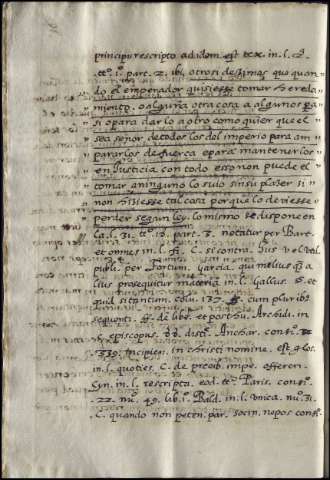 principis rescripto ad idem est tex. in. l. 2.
.tt.º 1.º part. 2. ibi, otrosi dezimos que quan
do el emperador quisiesse tomar hereda
miento. o alguna otra cosa a algunos pa
si o para darlo a otro como quier que el
sea señor de todos los del imperio para am
pararlos de fuerça e para mantenerlos
en Justicia con todo esso non puede el
tomar a ninguno lo suio sin su plazer si
non hiziesse tal cosa porque lo deviesse
perder segun ley. lo mismo se dispone en
la. l. 31. tt.º 18. part. 3. notatur per Bart.
et omnes in. l. fi. C. si contra. Jus vel utl.
publi. per Fortum. Garcia. qui melius q̃ a
lius prosequitur materia in. l. Gallus. §. et
quid si tantum. colu. 137. ff. cum pluribꝰ
sequenti. ff. de libe. et posthu. Archidi. in
episcopus. dist. Anchar. consº.
.339. incipien. in christi nomine. est glos.
in. l. quoties. C. de precib. impe. offeren.
Cyn. in. l. rescripta. eod. tt.º Paris. consº.
.22. nuº. 49. lib. 1.º Bald. in. l. unica. nu. 31.
C. quando non peten. par. Socin. nepos consº.